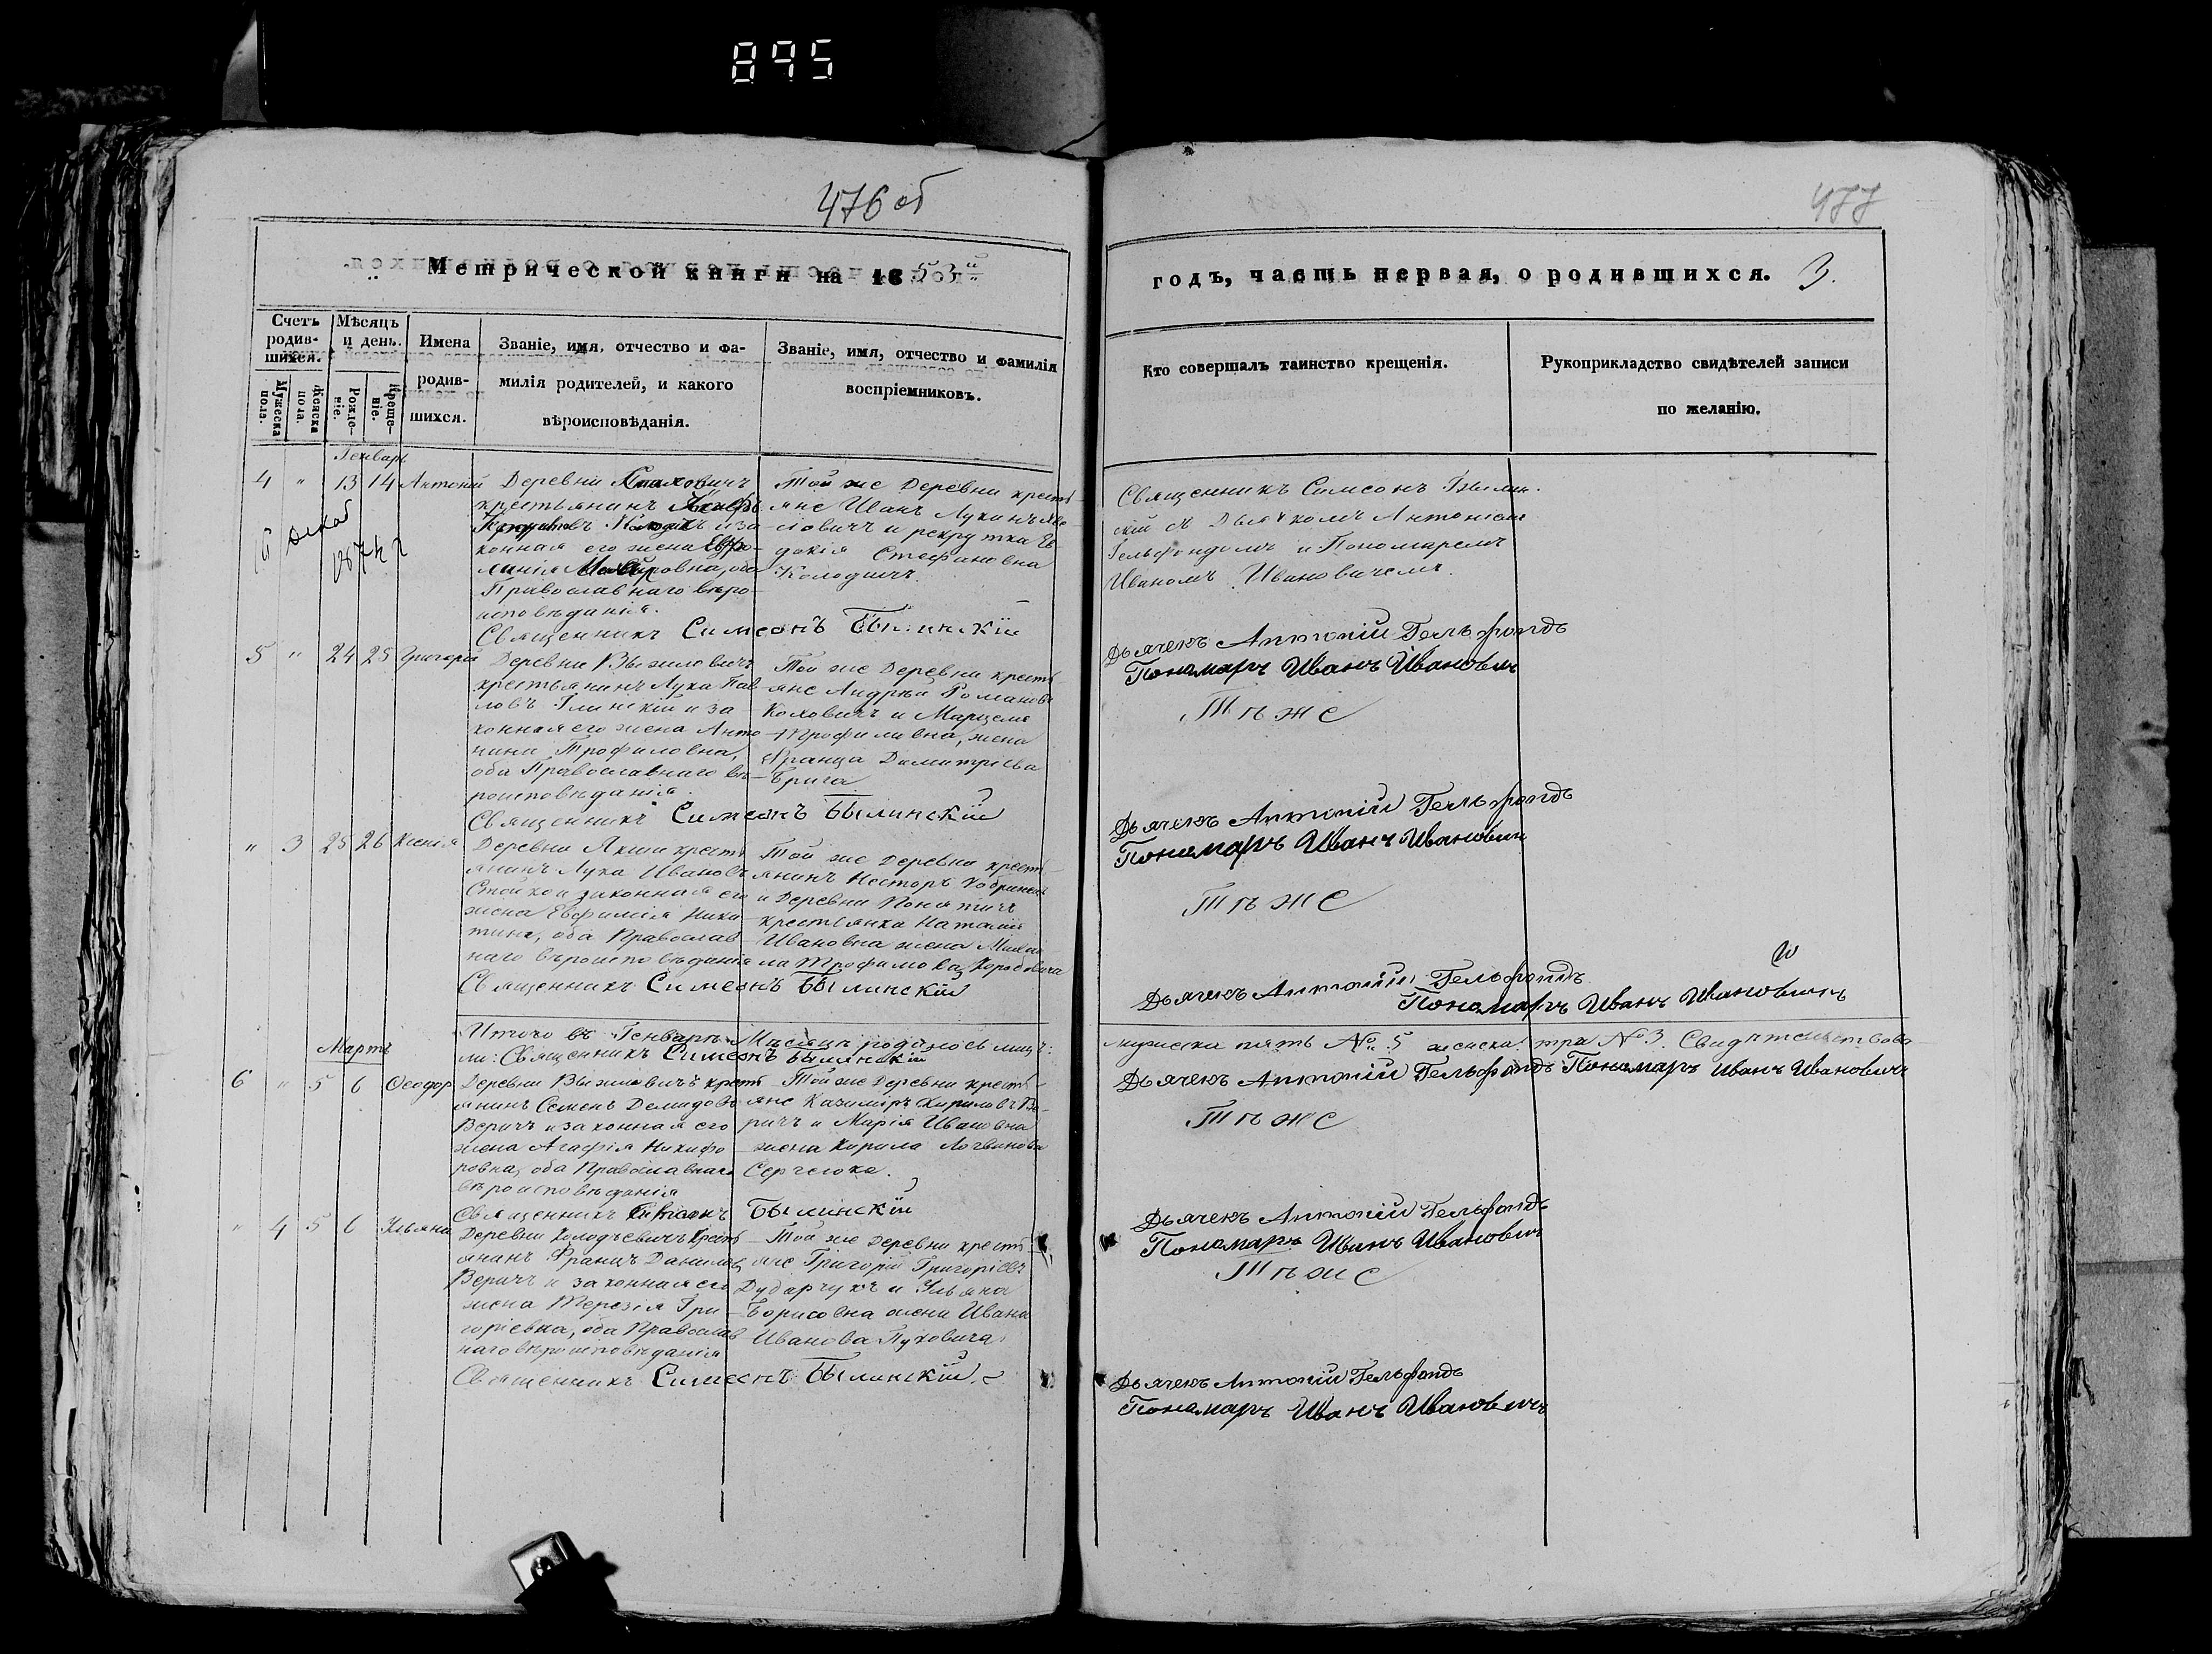 895
476 об
477
Метрической книги на 1853й
годъ, часть первая, о родившихся. 3.
Счетъ родив-
шихся.
Мужеска пола.
Женска пола.
Мѣсяцъ и день.
Рожде-
ніе.
Креще-
ніе.
Имена
родив-
шихся.
Званіе, имя, отчество и фа-
милія родителей, и какого
вѣроисповѣданія.
Званіе, имя, отчество и фамилія
воспріемниковъ.
Кто совершалъ таинство крещенія.
Рукоприкладство свидѣтелей записи
по желанію.
Генварь
4 " 13 14 Антоній
Деревни
крестьянинъ
и за
конная его жена Евфро-
, оба
Православнаго вѣро-
исповѣданія.
Священникъ Симеонъ Былинскій
Той же Деревни кресть-
яне Иванъ Лукинъ
и рекрутка Ев-
докія Стефановна
Колодичъ.
Священникъ Симеонъ Былин-
скій съ Дьячкомъ Антоніемъ
Гельфондомъ и Пономаремъ
Иваномъ Ивановичемъ.
Дьячекъ Антоній Гельфондъ
Пономарь Иванъ Ивановичъ
5 " 24 25 Григорій
Деревни Выжиловичъ
крестьянинъ Лука Пав-
ловъ Глинскій и за-
конная его жена Анто-
нина Трофиловна,
оба Православнаго вѣ-
роисповѣданія.
Священникъ Симеонъ Былинскій
Той же Деревни кресть-
яне Андрей Романовъ
Коховичъ и
жена
Франца Димитріева
Той же
Тѣ же
Дьячекъ Антоній Гельфондъ
Пономарь Иванъ Ивановичъ
" 3 25 26 Ксенія
Деревни кресть-
янинъ Лука Ивановъ
Стойко и законная его
жена Евфимія Ники-
тина, оба Православ-
наго вѣроисповѣданія
Священникъ Симеонъ Былинскій
Той же Деревни кресть-
янинъ Несторъ
и Деревни
крестьянка Наталія
Ивановна жена Михаи-
ла Трофимова Коробовича
Тѣ же
Дьячекъ Антоній Гельфондъ
Пономарь Иванъ Ивановичъ
Итого въ Генварѣ Мѣсяцѣ родилось
мужеска пять № 5 женска три № 3. Свидѣтельствова-
ли: Священникъ Симеонъ Былинскій
Дьячекъ Антоній Гельфондъ Пономарь Иванъ Ивановичъ
Мартъ
6 " 5 6 Ѳеодор
Деревни Выжиловичъ кресть-
янинъ Семенъ Демидовъ
Веричъ и законная его
жена Агафія Никифо-
ровна, оба Православнаго
вѣроисповѣданія
Священникъ Симеонъ Былинскій
Той же Деревни кресть-
яне Казиміръ Кириловъ Ве-
ричъ и Марія Ивановна
жена Кирила Логвинова
Сергеюка.
Тѣ же
Дьячекъ Антоній Гельфондъ
Пономарь Иванъ Ивановичъ
" 4 5 6 Ульяна
Деревни Колодѣевичъ кресть-
янинъ Францъ Даниловъ
Веричъ и законная его
жена Терезія Гри-
горіевна, оба Православ-
наго вѣроисповѣданія
Священникъ Симеонъ Былинскій
Той же Деревни кресть-
яне Григорій Григоріевъ
Дударчукъ и Ульяна
Борисовна жена Ивана
Иванова Пуховича
Тѣ же
Дьячекъ Антоній Гельфондъ
Пономарь Иванъ Ивановичъ